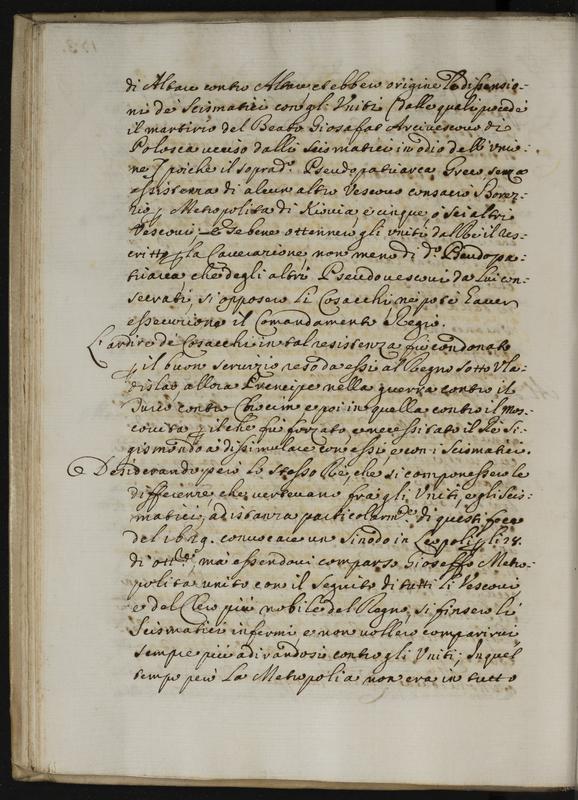 di Altare contro Altare, et ebbero origine le dissensio-
ni de Scismatici con gli Uniti (dalle quali procedè
il martirio del Beato Giosafat Arcivescovo di
Polosca ucciso dalli Scismatici in odio dell'unio-
ne) poiche il soprad.º Pseudopatriarca Greco senza
assistenza di alcun altro Vescovo consacrò Borez-
zio p Metropolita di Kiovia e cinque, o sei altri
Vescovi, e se bene ottennero gli uniti dal Rè il res-
critto p la carcerazione, non meno di d.º Pseudopa-
triarca che degli altri Pseudovescovi da lui con-
secrati, si opposero li Cosacchi, ne potè haver
essecuzione il Comandamento Regio.
L'ardire de Cosacchi in tal resistenza fù condonato
p il buon servizio reso da essi al Regno sotto Vla-
dislao, allora Prencipe nella guerra contro il
Turco contro Chocim, e poi in quella contro il Mos-
covita, p il che fù forzato, e necessitato il Rè Si-
gismondo a dissimulare con essi e con i Scismatici.
Desiderando però lo stesso Rè, che si componessero le
differenze, che vertevano fra gli Uniti, e gli Scis-
matici, ad istanza particolarm.te di questi fece
del 1629. convocare un Sinodo in Leopoli gli 28.
di ott.re, mà essendovi comparso Gioseffo Metro-
polita unito con il seguito di tutti li Vescovi,
e del Clero più nobile del Regno, si finsero li
Scismatici infermi, e non vollero comparirvi
sempre più adirandosi contro gli Uniti; In quel
tempo però la Metropolia non era in tutto